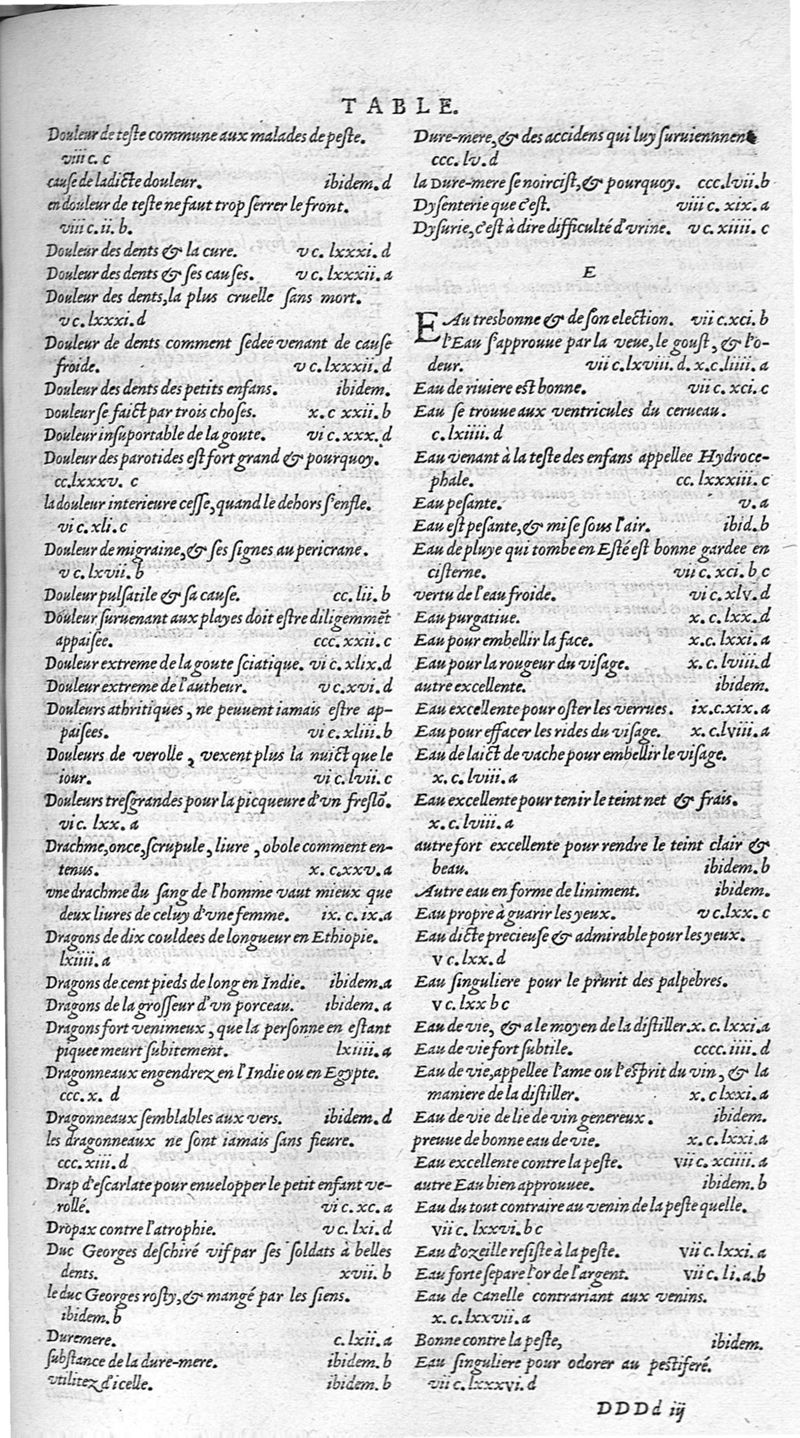 TABLE.
Douleur de teste commune aux malades de peste.
viii c. c
cause de ladicte douleur. ibidem. d
en douleur de teste ne faut trop serrer le front.
viii c. ii. b.
Douleur des dents & la cure. v c. lxxxi. d
Douleur des dents & ses causes. v c. lxxxii. a
Douleur des dents, la plus cruelle sans mort.
v c. lxxxi. d
Douleur de dents comment sedee venant de cause
froide. v c. lxxxii. d
Douleur des dents des petits enfans. ibidem.
Douleur se faict par trois choses. x. c xxii. b
Douleur insuportable de la goute. vi c. xxx. d
Douleur des parotides est fort grand & pourquoy.
cc. lxxxv. c
la douleur interieure cesse, quand le dehors s'enfle.
vi c. xli. c
Douleur de migraine, & ses signes au pericrane.
v c. lxvii. b
Douleur pulsatile & sa cause. cc. lii. b
Douleur suruenant aux playes doit estre diligemmēt
appaisee. ccc. xxii. c
Douleur extreme de la goute sciatique. vi c. xlix. d
Douleur extreme de l'autheur. v c. xvi. d
Douleurs athritiques, ne peuuent iamais estre ap-
paisees. vi c. xliii. b
Douleurs de verolle, vexent plus la nuict que le
iour. vi c. lvii. c
Douleurs tresgrandes pour la picqueure d'vn freslō.
vi c. lxx. a
Drachme, once, scrupule, liure, obole comment en-
tenus. x. c. xxv. a
vne drachme du sang de l'homme vaut mieux que
deux liures de celuy d'vne femme. ix. c. ix. a
Dragons de dix couldees de longueur en Ethiopie.
lxiiii. a
Dragons de cent pieds de long en Indie. ibidem. a
Dragons de la grosseur d'vn porceau. ibidem. a
Dragons fort venimeux, que la personne en estant
piquee meurt subitement. lxiiii. a
Dragonneaux engendrez en l'Indie ou en Egypte.
ccc. x. d
Dragonneaux semblables aux vers. ibidem. d
les dragonneaux ne sont iamais sans fieure.
ccc. xiii. d
Drap d'escarlate pour enuelopper le petit enfant ve-
rollé. vi c. xc. a
Dropax contre l'atrophie. v c. lxi. d
Duc Georges deschiré vif par ses soldats à belles
dents. xvii. b
le duc Georges rosty, & mangé par les siens.
ibidem. b
Duremere. c. lxii. a
substance de la dure-mere. ibidem. b
vtilitez d'icelle. ibidem. b
Dure-mere, & des accidens qui luy suruiennnent
ccc. lv. d
la Dure-mere se noircist, & pourquoy. ccc. lvii. b
Dysenterie que c'est. viii c. xix. a
Dysurie, c'est à dire difficulté d'vrine. v c. xiiii. c
E
EAu tresbonne & de son election. vii c. xci. b
l'Eau s'approuue par la veue, le goust, & l'o-
deur. vii c. lxviii. d. x. c. liiii. a
Eau de riuiere est bonne. vii c. xci. c
Eau se trouue aux ventricules du cerueau.
c. lxiiii. d
Eau venant à la teste des enfans appellee Hydroce-
phale. cc. lxxxiii. c
Eau pesante. v. a
Eau est pesante, & mise sous l'air. ibid. b
Eau de pluye qui tombe en Esté est bonne gardee en
cisterne. vii c. xci. b c
vertu de l'eau froide. vi c. xlv. d
Eau purgatiue. x. c. lxx. d
Eau pour embellir la face. x. c. lxxi. a
Eau pour la rougeur du visage. x. c. lviii. d
autre excellente. ibidem.
Eau excellente pour oster les verrues. ix. c. xix. a
Eau pour effacer les rides du visage. x. c. lviii. a
Eau de laict de vache pour embellir le visage.
x. c. lviii. a
Eau excellente pour tenir le teint net & frais.
x. c. lviii. a
autre fort excellente pour rendre le teint clair &
beau. ibidem. b
Autre eau en forme de liniment. ibidem.
Eau propre à guarir les yeux. v c. lxx. c
Eau dicte precieuse & admirable pour les yeux.
v c. lxx. d
Eau singuliere pour le prurit des palpebres.
v c. lxx b c
Eau de vie, & a le moyen de la distiller. x. c. lxxi. a
Eau de vie fort subtile. cccc. iiii. d
Eau de vie, appellee l'ame ou l'esprit du vin, & la
maniere de la distiller. x. c lxxi. a
Eau de vie de lie de vin genereux. ibidem.
preuue de bonne eau de vie. x. c. lxxi. a
Eau excellente contre la peste. vii c. xciiii. a
autre Eau bien approuuee. ibidem. b
Eau du tout contraire au venin de la peste quelle.
vii c. lxxvi. b c
Eau d'ozeille resiste à la peste. vii c. lxxi. a
Eau forte separe l'or de l'argent. vii c. li. a. b
Eau de Canelle contrariant aux venins.
x. c. lxxvii. a
Bonne contre la peste, ibidem.
Eau singuliere pour odorer au pestiferé.
vii c. lxxxvi. d
DDDd iij